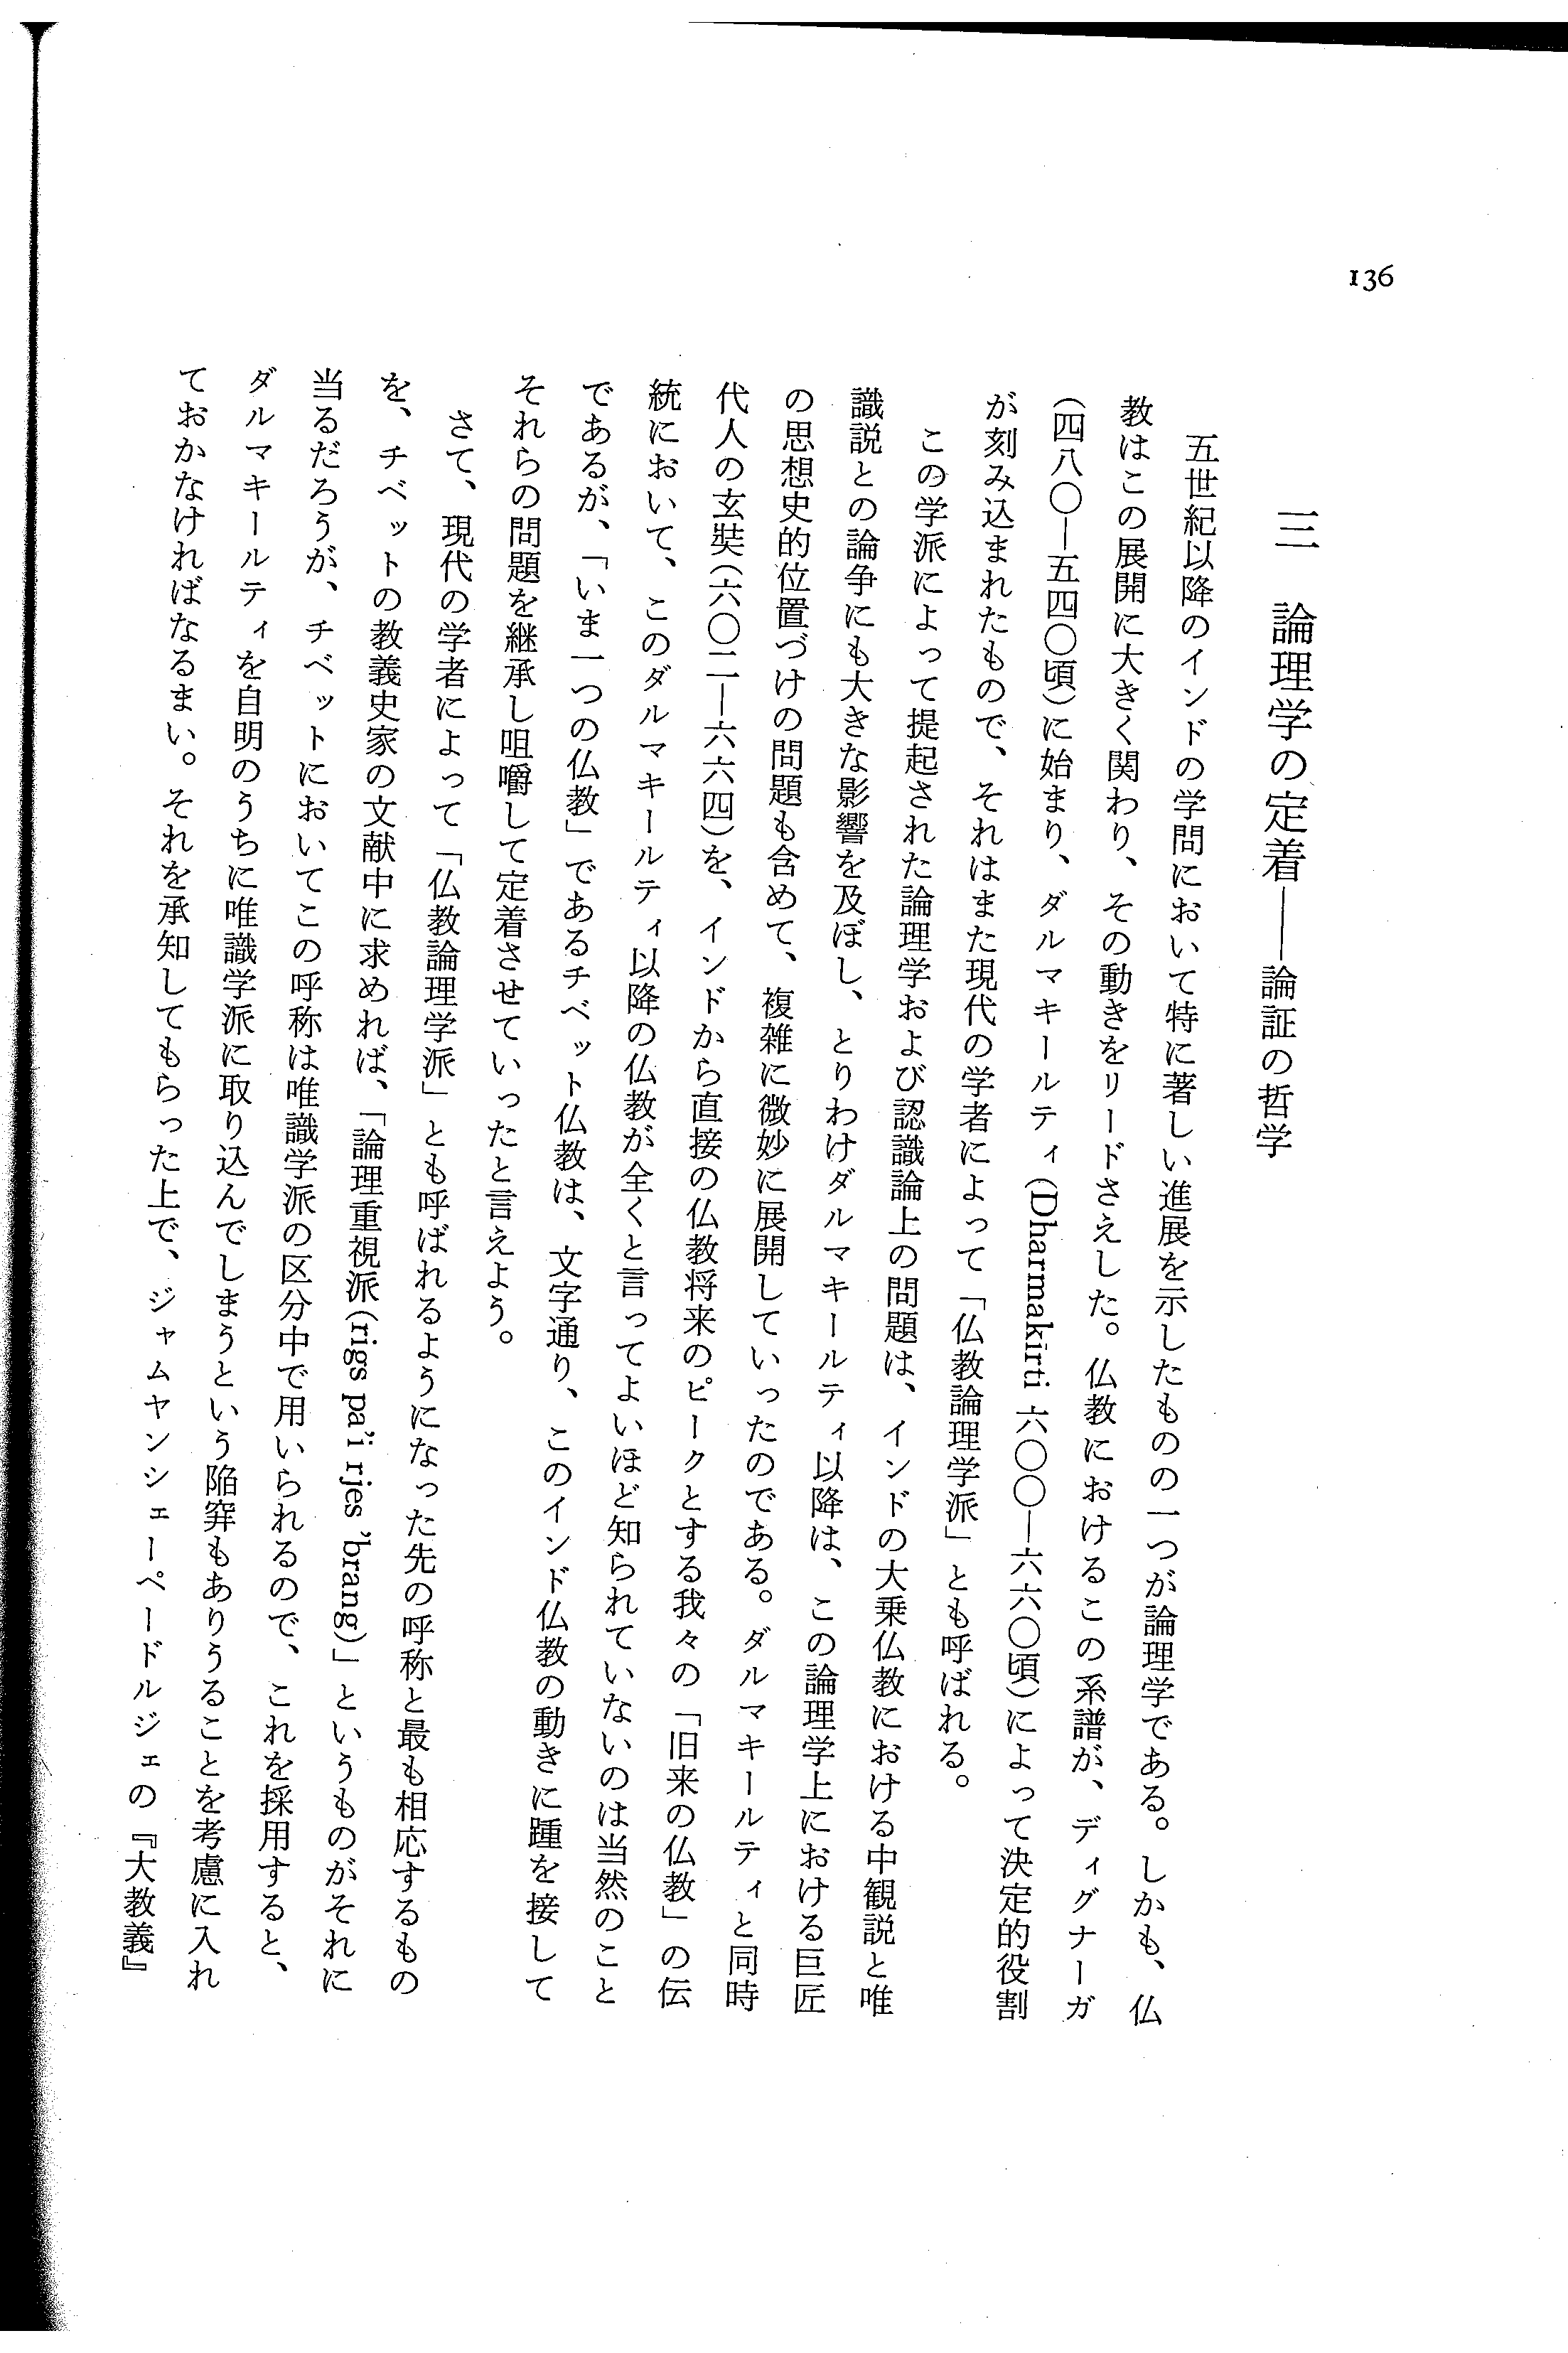 136
三　論理学の定着――論証の哲学
五世紀以降のインドの学問において特に著しい進展を示したものの一つが論理学である。しかも、仏
教はこの展開に大きく関わり、その動きをリードさえした。仏教におけるこの系譜が、ディグナーガ
(四八〇―五四〇頃)に始まり、ダルマキールティ(Dharmakīrti 六〇〇―六六〇頃)によって決定的役割
が刻み込まれたもので、それはまた現代の学者によって「仏教論理学派」とも呼ばれる。
この学派によって提起された論理学および認識論上の問題は、インドの大乗仏教における中観説と唯
識説との論争にも大きな影響を及ぼし、とりわけダルマキールティ以降は、この論理学上における巨匠
の思想史的位置づけの問題も含めて、複雑に微妙に展開していったのである。ダルマキールティと同時
代人の玄奘(六〇二―六六四)を、インドから直接の仏教将来のピークとする我々の「旧来の仏教」の伝
統において、このダルマキールティ以降の仏教が全くと言ってよいほど知られていないのは当然のこと
であるが、「いま一つの仏教」であるチベット仏教は、文字通り、このインド仏教の動きに踵を接して
それらの問題を継承し咀嚼して定着させていったと言えよう。
さて、現代の学者によって「仏教論理学派」とも呼ばれるようになった先の呼称と最も相応するもの
を、チベットの教義史家の文献中に求めれば、「論理重視派(rigs pa'i rjes 'brang)」というものがそれに
当るだろうが、チベットにおいてこの呼称は唯識学派の区分中で用いられるので、これを採用すると、
ダルマキールティを自明のうちに唯識学派に取り込んでしまうという陥穽もありうることを考慮に入れ
ておかなければなるまい。それを承知してもらった上で、ジャムヤンシェーペードルジェの『大教義』